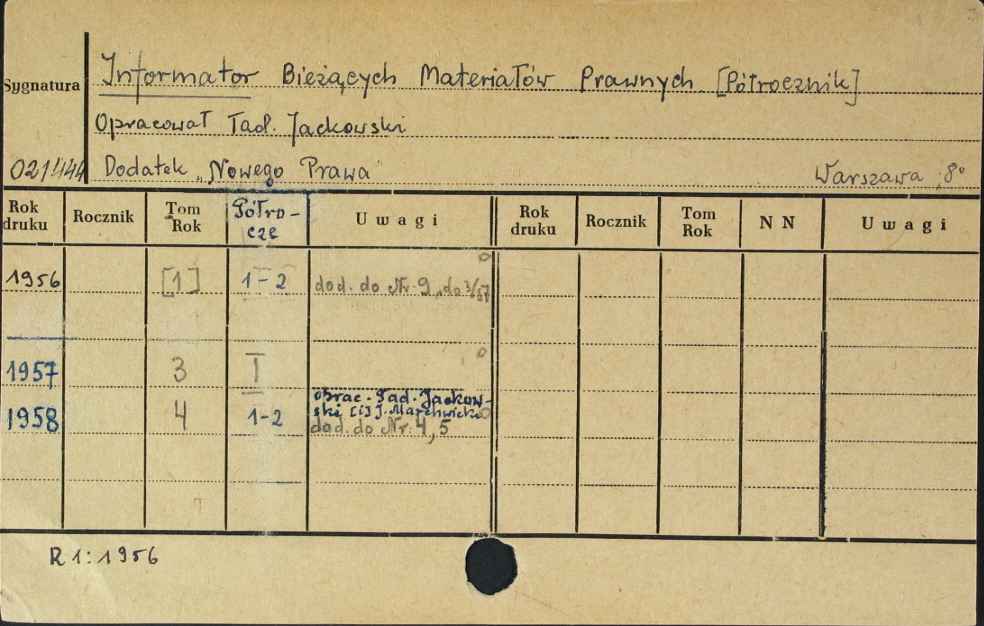 Informator Bieżących Materiałów Prawnych [Półrocznik]
Sygnatura
Opracował Tad. Jackowski
021444 Dodatek „Nowego Prawa" Warszawa 8°
Rok druku Rocznik Tom Rok Półro-cze Uwagi Rok druku Rocznik Tom Rok NN Uwagi
1956 [1] 1-2 dod. do Nr 9, do 3/57
1957 3 I
1958 4 1-2 oprac. Tad. Jackow-
ski [i] J. Marchwicki
dod. do Nr 4,5
R 1: 1956